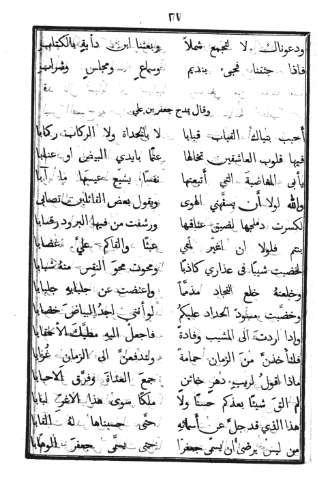 ٢٧
ودعوناك لا لتجمع شملا وبعثنا ابن دأية بالكتاب
فاذا جئتنا فجئ بنديم وسماع ومجلس وشراب
وقال يمدح جعفر بن علي
أحبب بتياك القباب قبابا لا بالحداة ولا الركاب ركابا
فيها قلوب العاشقين تخالها عنما بأيدي البيض أو عنابا
بأبي المها التي أتبعتها نفسا يشيع عيسها ما آبا
والله لولا أن يسفهني الهوى ويقول بعض القائلين تصابى
لكسرت دملجها بضيق عناقها ورشفت من فيها البرود رضابا
بنتم فلولا ان اغير لمتي عبثا وألقاكم علي غضابا
لخضبت شيبا في عذاري كاذبا ومحوت محو النقس منه شبابا
وخلعته خلع النجاد مذمما واعتضت من جلبابه جلبابا
وخضبت مسود الحداد عليكم لو أنني أجد البياض خضابا
واذا اردت الى المشيب وفادة فاجعل اليه مطيك الأحقابا
فلتأخذن من الزمان حمامة ولتدفعن الى الزمان غرابا
ماذا اقول لريب دهر خائن جمع العداة وفرق الاحبابا
لم الق شيئا بعدكم حسنا ولا ملكا سوى هذا الاغر لبابا
هذا الذي قد جل عن أسمائه حتى حسبناها له القابا
من ليس يرضى أن يسمى جعفرا حتى يسمى جعفر الوهابا